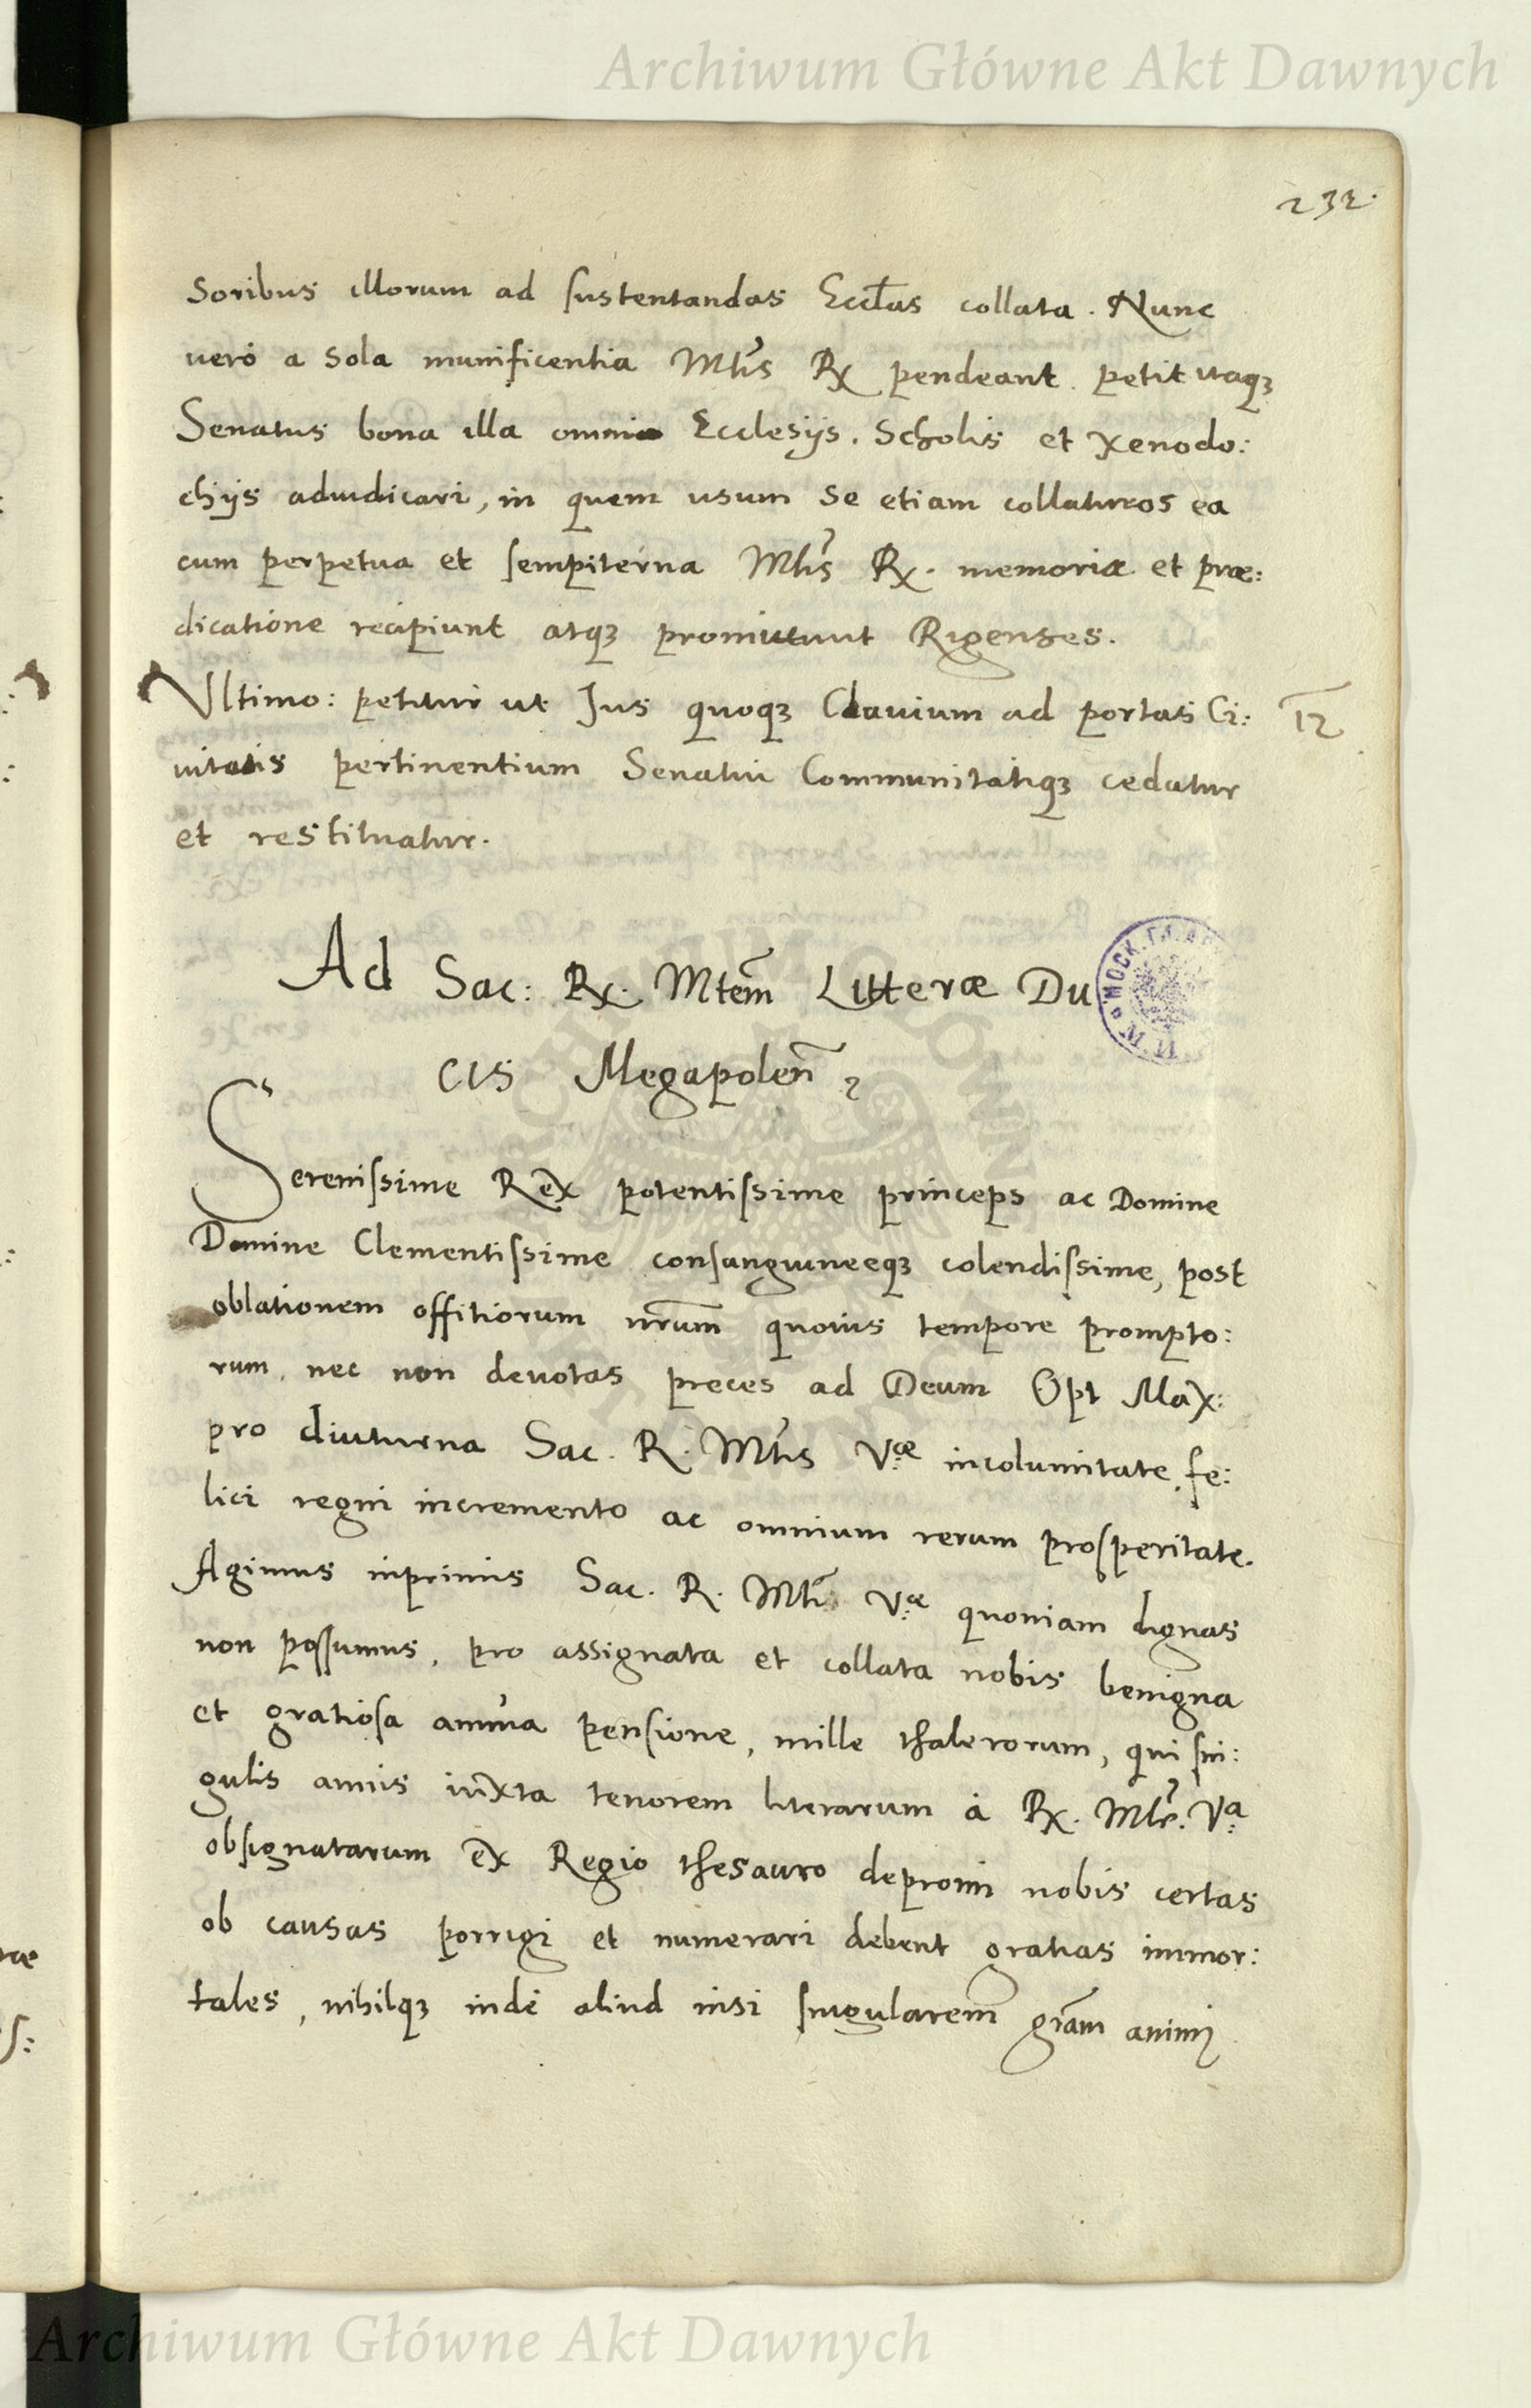 Archiwum Główne Akt Dawnych
232.
soribus illorum ad sustentandas Eccl̃as collata. Nunc
verò a sola munificentia Mtis Rx pendeant. petit itaqꝫ
Senatus bona illa omnia Ecclesijs. Scholis et Xenodo:
chijs adiudicari, in quem usum se etiam collaturos ea
cum perpetua et sempiterna Mtis Rx. memoria et præ:
dicatione recipiunt atqꝫ promittunt Rigenses.
Vltimo: petitur ut Jus quoqꝫ Clavium ad portas Ci: 12
uitatis pertinentium Senatui Communitatiqꝫ cedatur
et restituatur.
Ad Sac: Rx. Mtem̃ Litteræ Du
cis Megapolen̄
Serenissime Rex potentissime princeps ac Domine
Domine Clementissime consanguineeqꝫ colendissime, post
oblationem offitiorum nr̃um quovis tempore prompto:
rum, nec non deuotas preces ad Deum Opt Max:
pro diuturna Sac. R. Mtis Vræ incolumitate, fe:
lici regni incremento ac omnium rerum prosperitate.
Agimus inprimis Sac. R. Mti Vræ quoniam dignas
non possumus, pro assignata et collata nobis benigna
et gratiosa annua pensione, mille thalerorum, qui sin:
gulis annis iuxta tenorem literarum à Rx. Mte. Vra
obsignatarum ex Regio thesauro depromi nobis certas
ob causas porrigi et numerari debent gratias immor:
tales, nihilqꝫ indè aliud nisi singularem gr̃am animi
Archiwum Główne Akt Dawnych